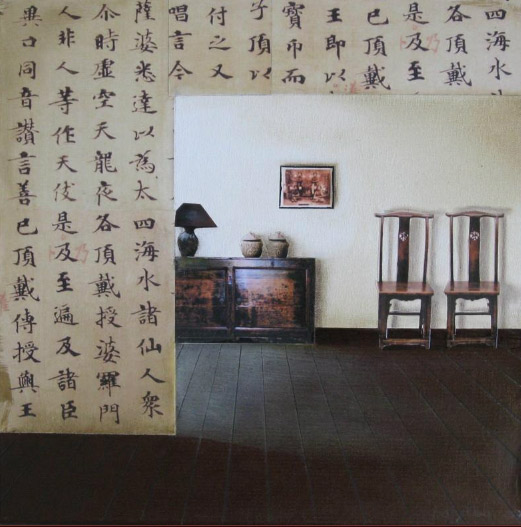 四海水
各頂戴
是及至
已頂戴
王即以
寶帀而
子頂以
付之又
唱言令
薩婆悉達以為太四海水諸仙人衆
尒時虛空天龍夜各頂戴授婆羅門
人非人等作天伎是及至遍及諸臣
異口同音讚言善已頂戴傳授與王